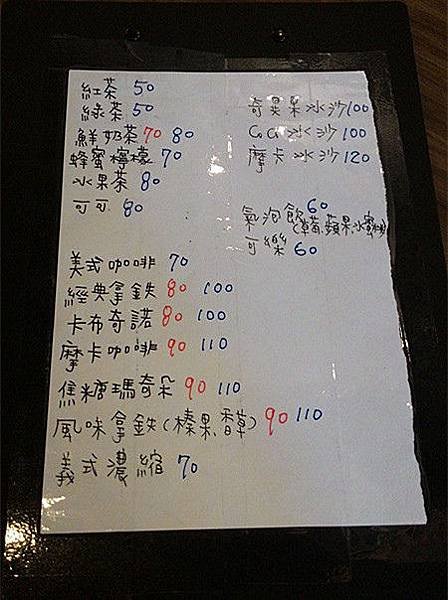 紅茶 50
綠茶 50
鮮奶茶 70 80
蜂蜜檸檬 70
水果茶 80
可可 80
奇異果冰沙 100
CoCo冰沙 100
摩卡冰沙 120
氣泡飲 60
(草莓,蘋果,水蜜桃)
可樂 60
美式咖啡 70
經典拿鉄 80 100
卡布奇諾 80 100
摩卡咖啡 90 110
焦糖瑪奇朵 90 110
風味拿鉄(榛果.香草) 90 110
義式濃縮 70